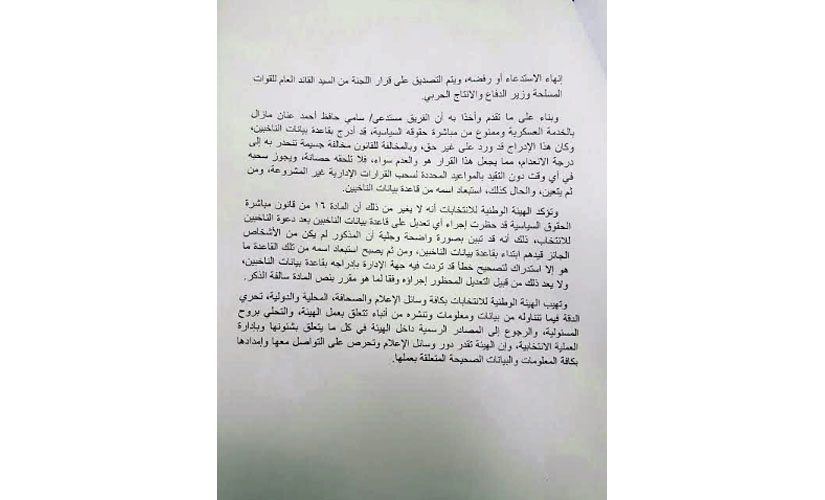 إنهاء الاستدعاء أو رفضه، ويتم التصديق على قرار اللجنة من السيد القائد العام للقوات
المسلحة وزير الدفاع والانتاج الحربي.
وبناء على ما تقدم وأخذا به أن الفريق مستدعى/ سامي حافظ أحمد عنان مازال
بالخدمة العسكرية وممنوع من مباشرة حقوقه السياسية، قد أدرج بقاعدة بيانات الناخبين،
وكان هذا الإدراج قد ورد على غير حق، وبالمخالفة للقانون مخالفة جسيمة تنحدر به إلى
درجة الانعدام، مما يجعل هذا القرار هو والعدم سواء، فلا تلحقه حصانة، ويجوز سحبه
في أي وقت دون التقيد بالمواعيد المحددة لسحب القرارات الإدارية غير المشروعة، ومن
ثم يتعين، والحال كذلك، استبعاد اسمه من قاعدة بيانات الناخبين.
وتؤكد الهيئة الوطنية للانتخابات أنه لا يغير من ذلك أن المادة ١٦ من قانون مباشرة
الحقوق السياسية قد حظرت إجراء أي تعديل على قاعدة بيانات الناخبين بعد دعوة الناخبين
للانتخاب، ذلك أنه قد تبين بصورة واضحة وجلية أن المذكور لم يكن من الأشخاص
الجائز قيدهم ابتداء بقاعدة بيانات الناخبين، ومن ثم يصبح استبعاد اسمه من تلك القاعدة ما
هو إلا استدراك لتصحيح خطأ قد تردت فيه جهة الإدارة بإدراجه بقاعدة بيانات الناخبين،
ولا يعد ذلك من قبيل التعديل المحظور إجراؤه وفقا لما هو مقرر بنص المادة سالفة الذكر.
وتهيب الهيئة الوطنية للانتخابات بكافة وسائل الإعلام والصحافة، المحلية والدولية، تحري
الدقة فيما تتناوله من بيانات ومعلومات وتنشره من أنباء تتعلق بعمل الهيئة، والتحلي بروح
المسئولية، والرجوع إلى المصادر الرسمية داخل الهيئة في كل ما يتعلق بشئونها وبإدارة
العملية الانتخابية، وإن الهيئة تقدر دور وسائل الإعلام وتحرص على التواصل معها وإمدادها
بكافة المعلومات والبيانات الصحيحة المتعلقة بعملها.